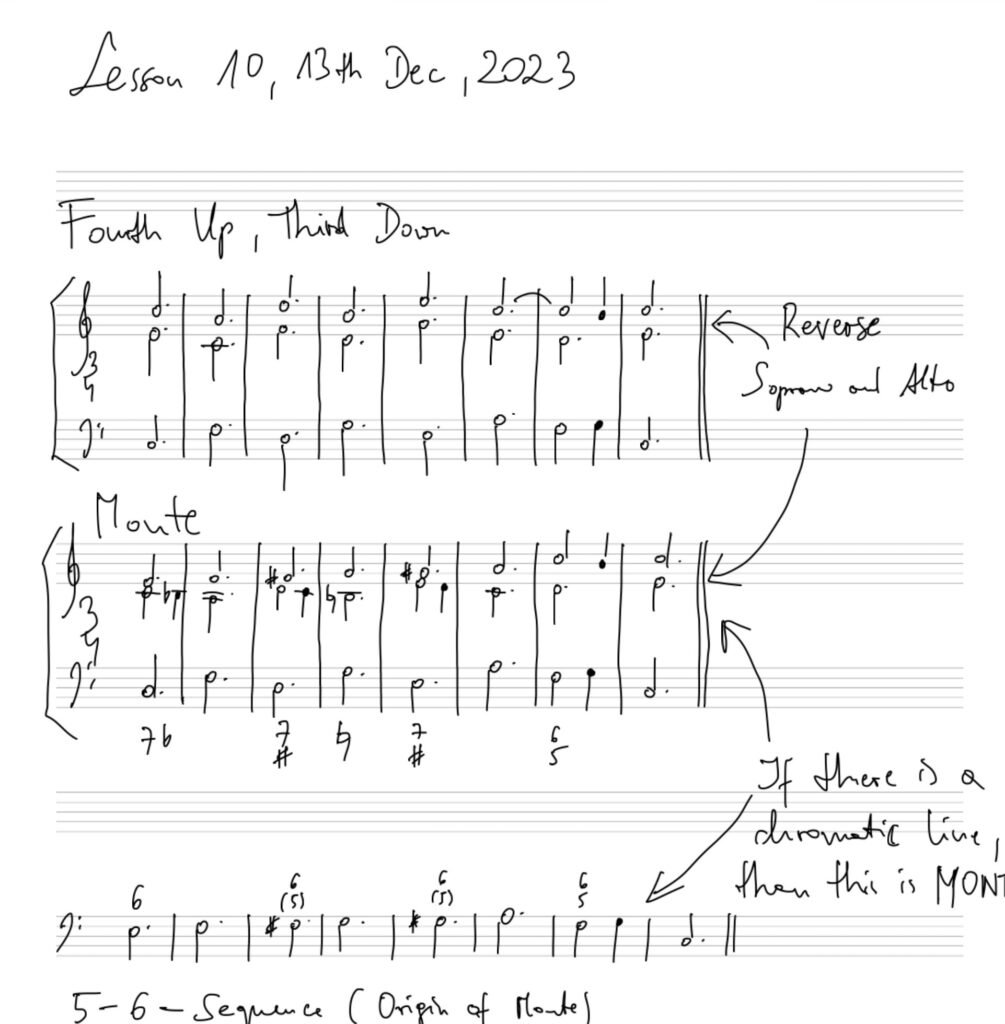 Lesson 10, 13th Dec, 2023
Fourth Up, Third Down
3
4
Reverse
Soprano and Alto
Monte
3
4
7♭ 7 ♮ 7 6
# # 5
If there is a
chromatic line,
then this is MONT
6 6 6 6
(5) (5) 5
5-6-Sequence (Origin of Monte)